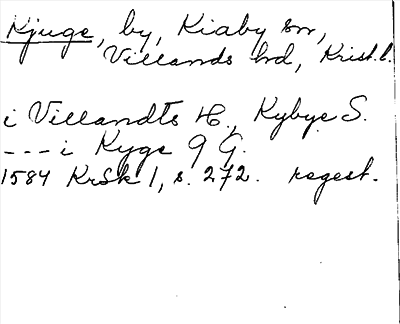 Kjuge, by, Kiaby sn,
Villands hd, Krist. l.
i Villandts H., Kybye S.
--- i Kyge 9 G.
1584 KrSk 1, s. 272. regest.